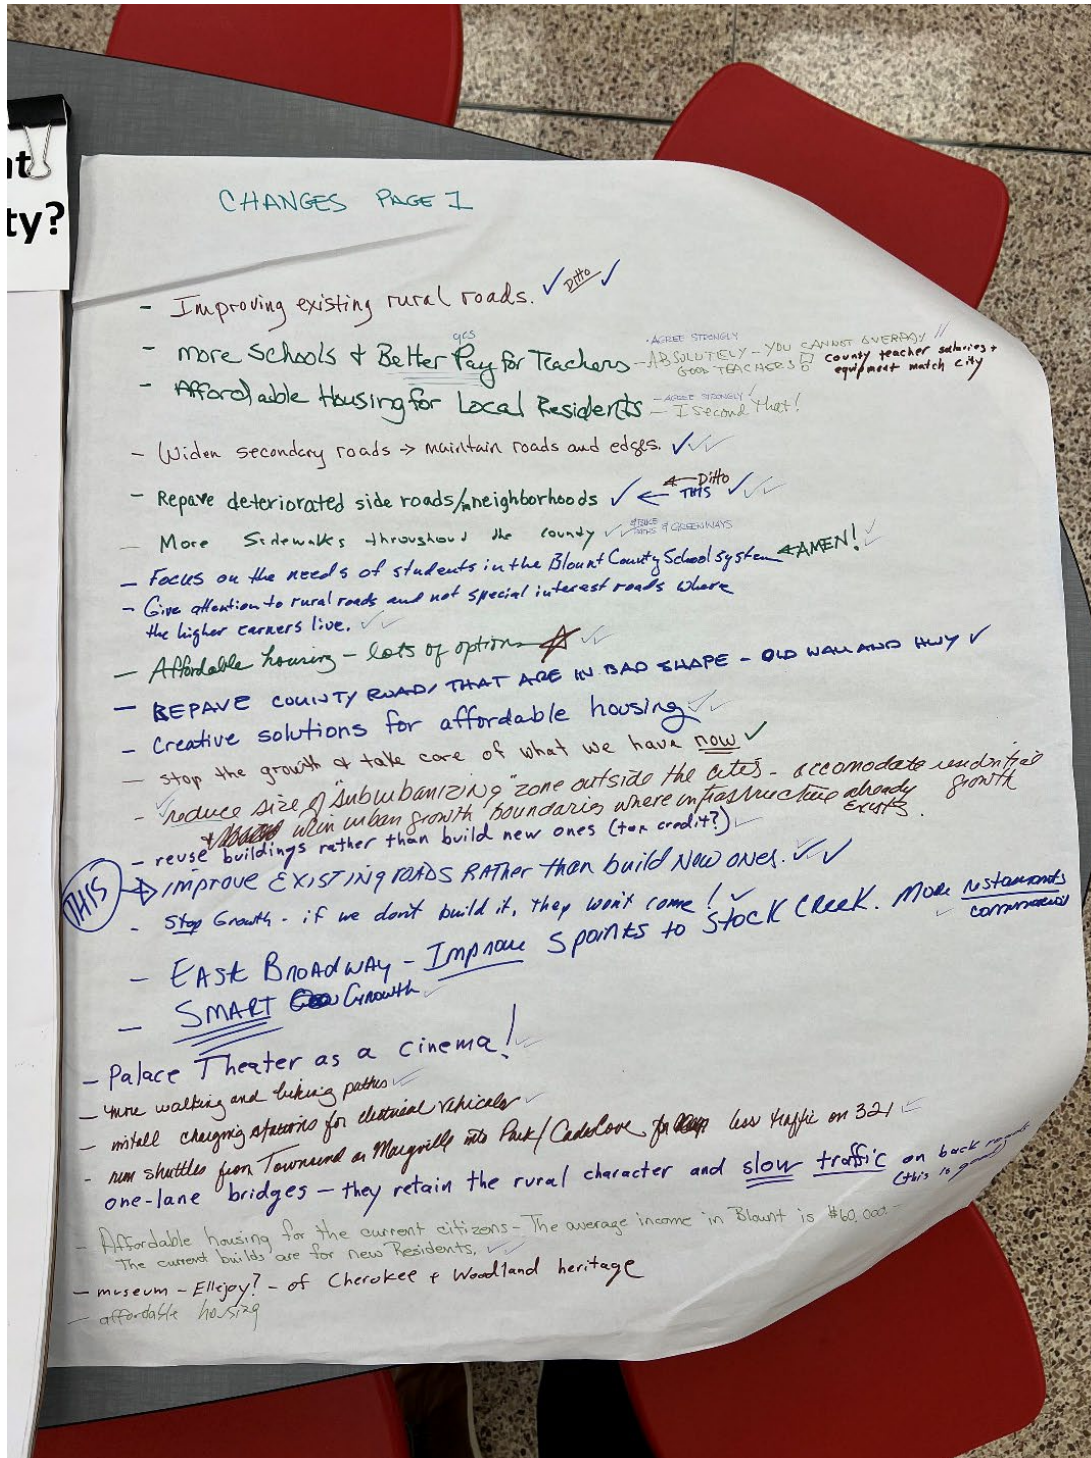 at
ty?
CHANGES PAGE 1
- Improving existing rural roads. ✓ Ditto ✓
yes
- more Schools & Better Pay for Teachers - ABSOLUTELY - YOU CANNOT OVERPAY
• AGREE STRONGLY
GOOD TEACHERS!
county teacher salaries +
equipment match city
- Affordable Housing for Local Residents - I second that!
- AGREE STRONGLY ✓
- Widen secondary roads → maintain roads and edges. ✓✓✓
- Repave deteriorated side roads/in neighborhoods ✓ ← THIS ✓✓✓
← Ditto
- More Sidewalks throughout the county ✓✓ & GREENWAYS
- Focus on the needs of students in the Blount County School system ← AMEN! ✓✓
- Give attention to rural roads and not special interest roads where
the higher earners live. ✓✓
- Affordable housing - lots of options ☆ ✓✓
- REPAVE COUNTY ROADS THAT ARE IN BAD SHAPE - OLD WALLAND HWY ✓
- Creative solutions for affordable housing ✓✓
- stop the growth & take care of what we have now ✓
- reduce size of "suburbanizing" zone outside the cities - accomodate residential growth
w/in urban growth boundaries where infrastructure already
exists.
- reuse buildings rather than build new ones (tax credit?) ✓
THIS → improve EXISTING ROADS RATHER than build New ones. ✓✓
- Stop Growth - if we don't build it, they won't come! ✓
- EAST BROADWAY - IMPROVE 5 points to STOCK CREEK. More restaurants
commercial
- SMART Growth ✓
- Palace Theater as a cinema! ✓✓
- more walking and biking paths ✓
- install charging stations for electrical vehicles ✓
- run shuttles from Townsend or Maryville into Park/Cades Cove for less traffic on 321 ✓
one-lane bridges - they retain the rural character and slow traffic on back roads
(this is good)
- Affordable housing for the current citizens - The average income in Blount is $60,000 -
The current builds are for new Residents. ✓✓
- museum - Ellejoy? - of Cherokee & Woodland heritage
- affordable housing